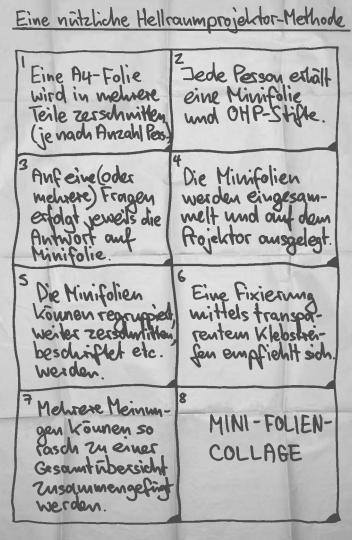 Eine nützliche Hellraumprojektor-Methode
1
Eine A4-Folie
wird in mehrere
Teile zerschnitten
(je nach Anzahl Pers.)
2
Jede Person erhält
eine Minifolie
und OHP-Stifte.
3
Auf eine (oder
mehrere) Fragen
erfolgt jeweils die
Antwort auf
Minifolie.
4
Die Minifolien
werden eingesam-
melt und auf dem
Projektor ausgelegt.
5
Die Minifolien
können regruppiert,
weiter zerschnitten,
beschriftet etc.
werden.
6
Eine Fixierung
mittels transpa-
rentem Klebstrei-
fen empfiehlt sich.
7
Mehrere Meinun-
gen können so
rasch zu einer
Gesamtübersicht
zusammengefügt
werden.
8
MINI-FOLIEN-
COLLAGE